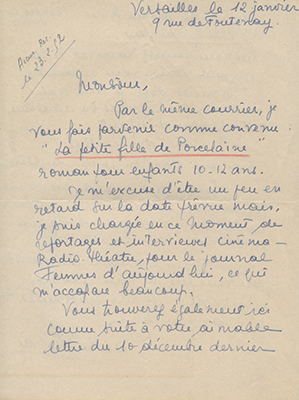 Versailles le 12 janvier
9 rue de Fontenay.
Accusé Réc.
le 23.2.12
Monsieur,
Par le même courrier, je
vous fais parvenir comme convenu :
"La petite fille de Porcelaine"
roman pour enfants 10-12 ans.
Je m'excuse d'être un peu en
retard sur la date prévue mais,
je suis chargée en ce moment de
reportages et interviewes cinéma-
Radio théatre, pour le journal
Femmes d'aujourd'hui, ce qui
m'accapare beaucoup.
Vous trouverez également ici
comme suite à votre aimable
lettre du 10 décembre dernier